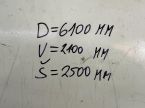 D=6100 мм
V=2100 мм
Š=2500 мм